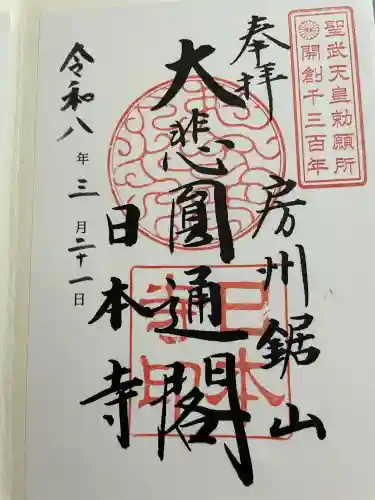 聖武天皇勅願所
開創千三百年
奉拝
房州鋸山
大悲圓通閣
日本寺
令和八年三月二十一日
日本
寺印